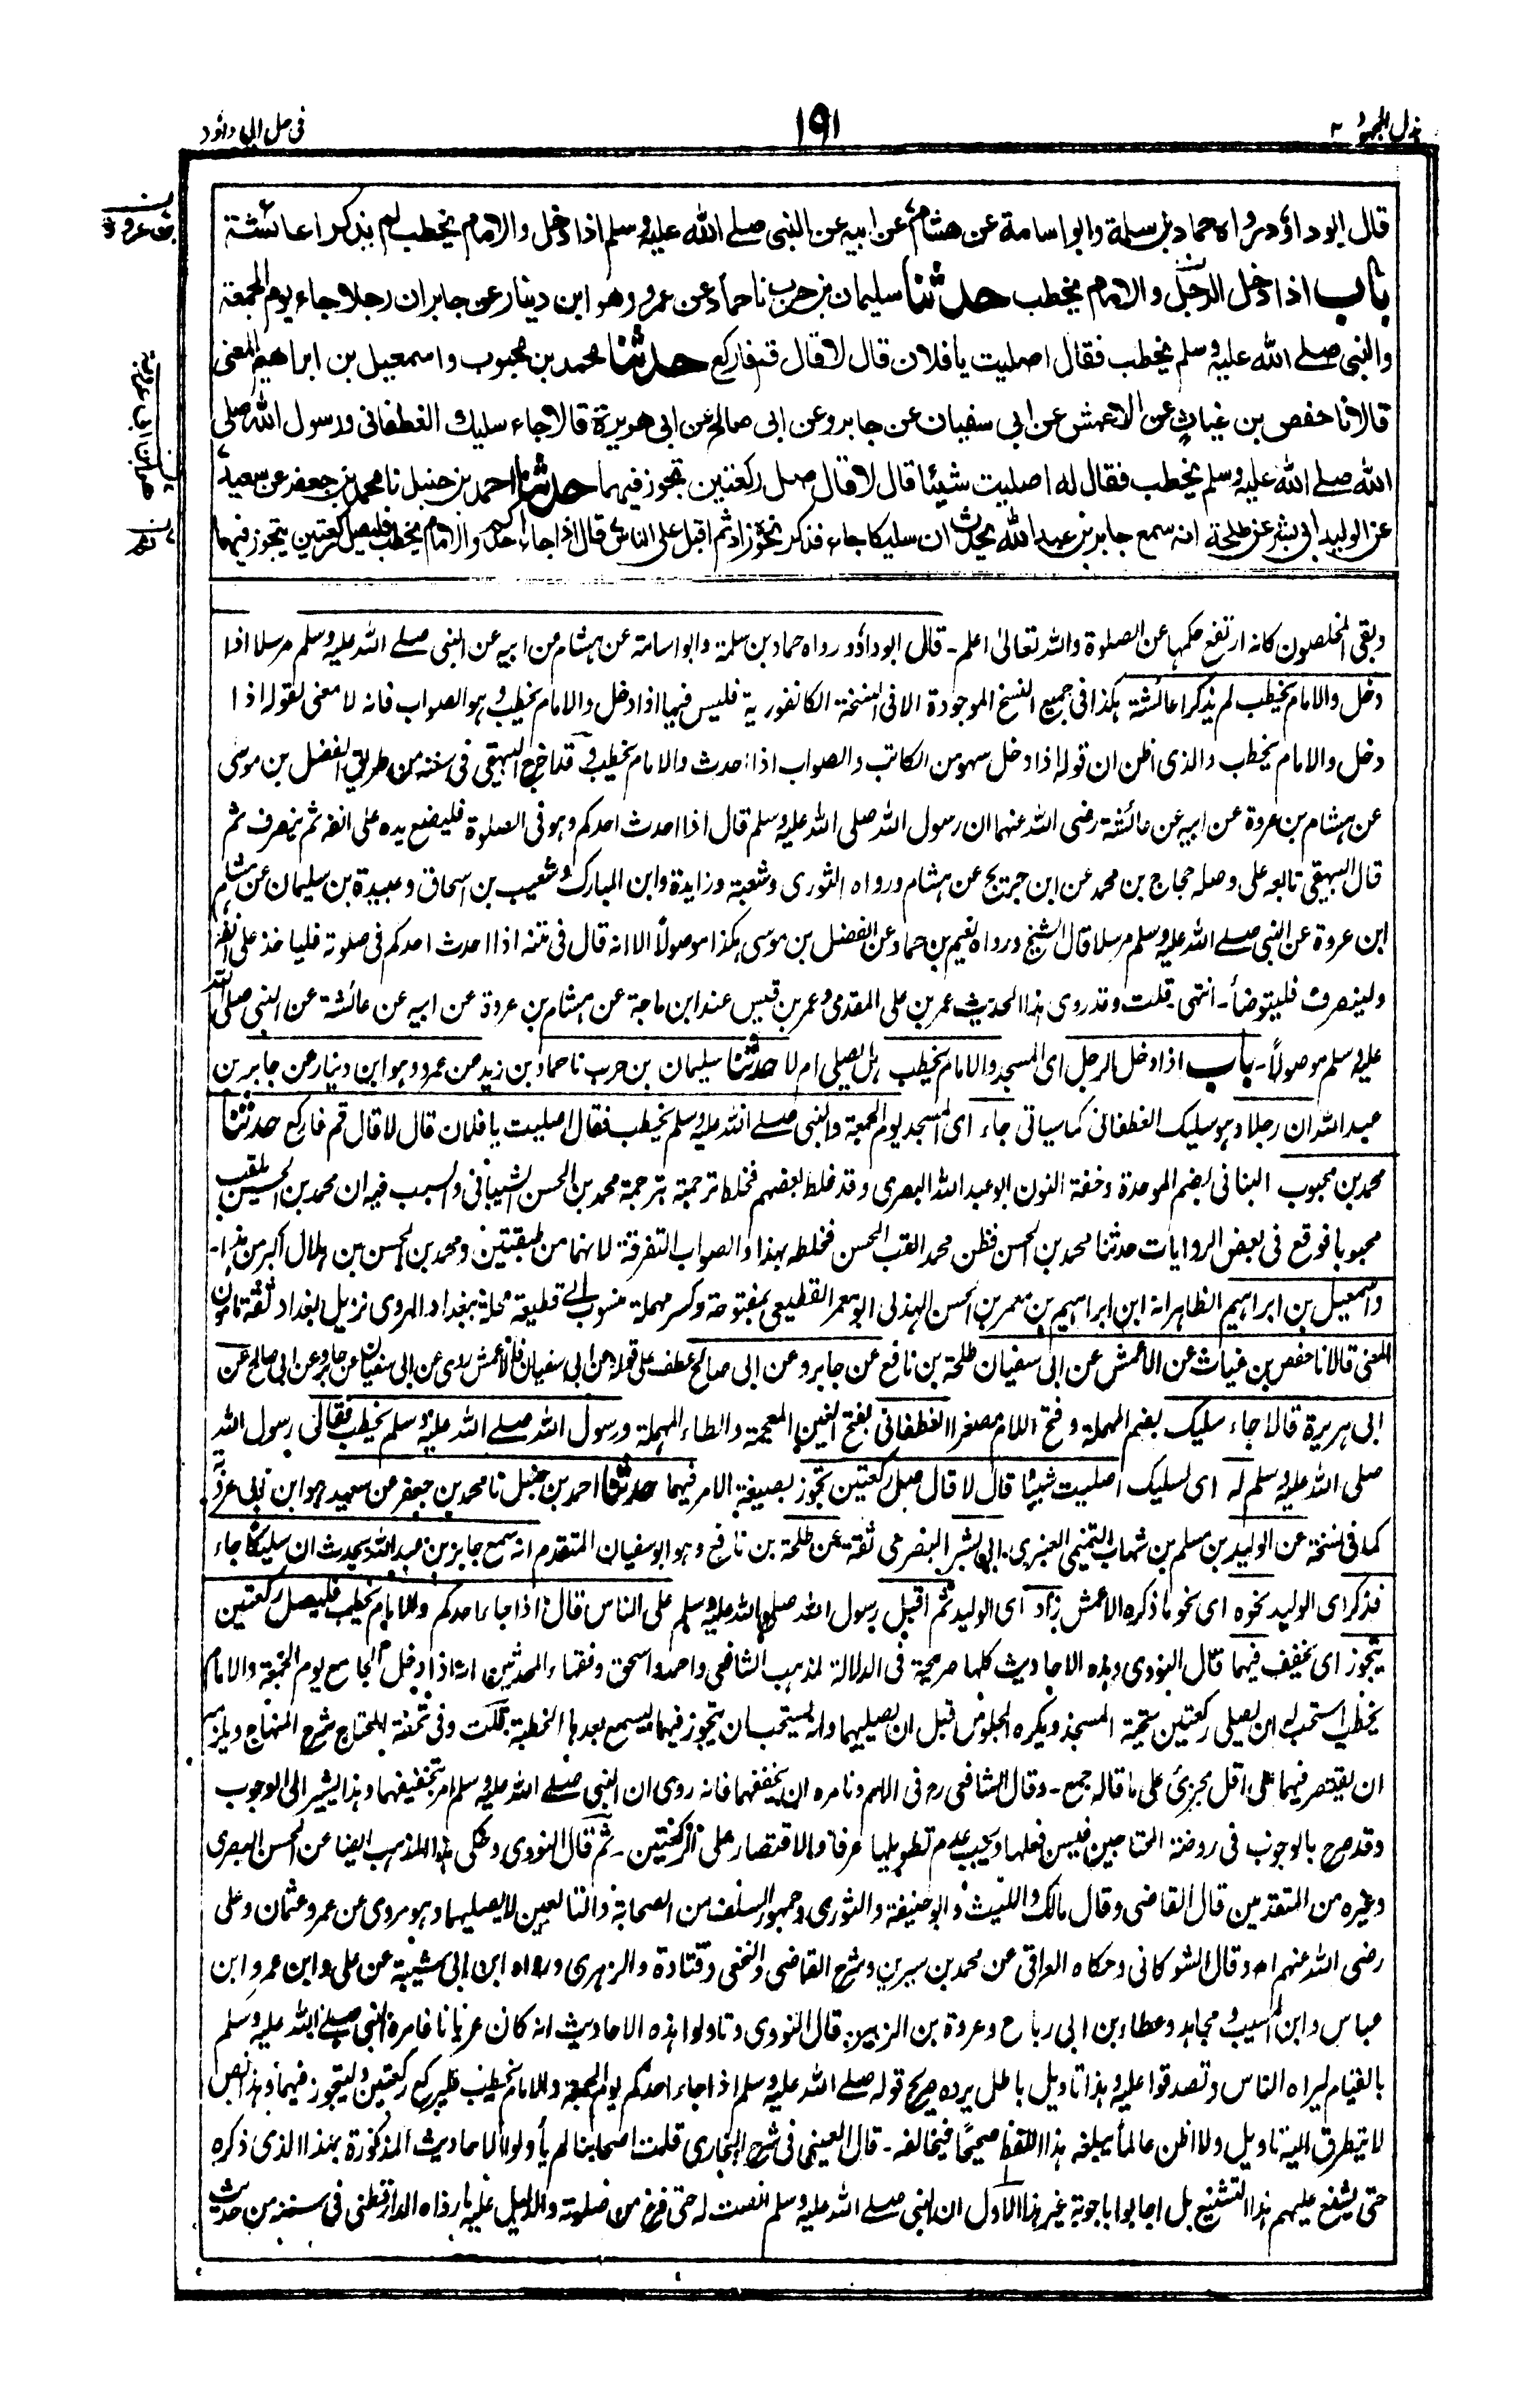 بذل المجهود ٢
١٩١
فى حل ابى داؤد
قال ابو داؤد رواه حماد بن سلمة وابو اسامة عن هشام عن ابيه عن النبى صلے الله عليه وسلم اذا دخل والامام يخطب لم يذكرا عائشة
باب اذا دخل الرجل والامام يخطب حدثنا سليمان بن حرب نا حماد عن عمرو وهو ابن دينار عن جابر ان رجلا جاء يوم الجمعة
والنبى صلے الله عليه وسلم يخطب فقال اصليت يا فلان قال لا قال قم فاركع حدثنا محمد بن محبوب واسمعيل بن ابراهيم المعنى
قالا نا حفص بن غياث عن الاعمش عن ابى سفيان عن جابر وعن ابى صالح عن ابى هريرة قالا جاء سليك الغطفانى ورسول الله صلى
الله صلے الله عليه وسلم يخطب فقال له اصليت شيئا قال لا قال صل ركعتين تجوز فيهما حدثنا احمد بن حنبل نا محمد بن جعفر عن سعيد
عن الوليد ابى بشر عن طلحة انه سمع جابر بن عبد الله يحدث ان سليكا جاء فذكر نحوه زاد ثم اقبل على الناس قال اذا جاء احدكم والامام يخطب فليصل ركعتين يتجوز فيهما
وبقى المخلصون كانه ارتفع حكمها عن الصلوة والله تعالىٰ اعلم ـ قال ابو داؤد رواه حماد بن سلمة وابو اسامة عن هشام عن ابيه عن النبى صلے الله عليه وسلم مرسلا اذا
دخل والامام يخطب لم يذكرا عائشة هكذا فى جميع النسخ الموجودة الا فى النسخة الكانفورية فليس فيها اذا دخل والامام يخطب وهو الصواب فانه لا معنى لقوله اذا
دخل والامام يخطب والذى اظن ان قوله اذا دخل سهو من الكاتب والصواب اذا احدث والامام يخطب وقد اخرج البيهقى فى سننه من طريق الفضل بن موسى
عن هشام بن عروة عن ابيه عن عائشة رضى الله عنها ان رسول الله صلى الله عليه وسلم قال اذا احدث احدكم وهو فى الصلوة فليضع يده على انفه ثم ينصرف ثم
قال البيهقى تابعه على وصله حجاج بن محمد عن ابن جريج عن هشام ورواه الثورى وشعبة وزايدة وابن المبارك وشعيب بن اسحاق وعبيدة بن سليمان عن هشام
ابن عروة عن النبى صلے الله عليه وسلم مرسلا قال الشيخ ورواه نعيم بن حماد عن الفضل بن موسى هكذا موصولا الا انه قال فى متنه اذا احدث احدكم فى صلوته فلياخذ على انفه
ولينصرف فليتوضأ ـ انتهى قلت وقد روى هذا الحديث عمر بن على المقدمى وعمر بن قيس عند ابن ماجة عن هشام بن عروة عن ابيه عن عائشة عن النبى صلى الله
عليه وسلم موصولاً ـ باب اذا دخل الرجل اى المسجد والامام يخطب هل يصلى ام لا حدثنا سليمان بن حرب نا حماد بن زيد عن عمرو وهو ابن دينار عن جابر بن
عبد الله ان رجلا وهو سليك الغطفانى كما سياتى جاء اى المسجد يوم الجمعة والنبى صلے الله عليه وسلم يخطب فقال اصليت يا فلان قال لا قال قم فاركع حدثنا
محمد بن محبوب البنانى بضم الموحدة وخفة النون ابو عبد الله البصرى وقد غلط بعضهم فخلط ترجمته بترجمة محمد بن الحسن الشيبانى والسبب فيه ان محمد بن الحسين يلقب
محبوبا فوقع فى بعض الروايات حدثنا محمد بن الحسن فظن محمد القب الحسن فخلطه بهذا والصواب التفرقة لانهما من طبقتين ومحمد بن الحسن بن هلال اكبر من هذا ـ
واسمعيل بن ابراهيم الظاهر انه ابن ابراهيم بن معمر بن الحسن الهذلى ابو معمر القطيعى بمفتوحة وكسر مهملة منسوب الے قطيعة محلة ببغداد الهروى نزيل بغداد ثقة مامون
المعنى قالا نا حفص بن غياث عن الاعمش عن ابى سفيان طلحة بن نافع عن جابر وعن ابى صالح عطف على قوله عن ابى سفيان فالاعمش روى عن ابى سفيان عن جابر وعن ابى صالح عن
ابى هريرة قالا جاء سليك بضم المهملة وفتح اللام مصغرا الغطفانى بفتح الغين المعجمة والطاء المهملة ورسول الله صلے الله عليه وسلم يخطب فقال رسول الله
صلى الله عليه وسلم له اى لسليك اصليت شيئا قال لا قال صل ركعتين تجوز بصيغة الامر فيهما حدثنا احمد بن حنبل نا محمد بن جعفر عن سعيد هو ابن ابى عروبة
كما فى نسخة عن الوليد بن مسلم بن شهاب التميمى العنبرى ابى بشر البصرى ثقة عن طلحة بن نافع وهو ابو سفيان المتقدم انه سمع جابر بن عبد الله يحدث ان سليكا جاء
فذكر اى الوليد نحوه اى نحو ما ذكره الاعمش زاد اى الوليد ثم اقبل رسول الله صلى الله عليه وسلم على الناس قال اذا جاء احدكم والامام يخطب فليصل ركعتين
يتجوز اى يخفف فيهما قال النووى وهذه الاحاديث كلها صريحة فى الدلالة لمذهب الشافعى واحمد واسحق وفقهاء المحدثين انه اذا دخل الجامع يوم الجمعة والامام
يخطب استحب له ان يصلى ركعتين تحية المسجد ويكره الجلوس قبل ان يصليهما وانه يستحب ان يتجوز فيهما ليسمع بعدها الخطبة قلت وفى تحفة المحتاج شرح المنهاج ويلزمه
ان يقتصر فيهما على اقل مجزئ على ما قاله جمع ـ وقال الشافعى رح فى الام ونامره ان يخففهما فانه روى ان النبى صلے الله عليه وسلم امر بتخفيفهما وهذا يشير الى الوجوب
وقد صرح بالوجوب فى روضة المحتاجين فيسن فعلها ويجب عدم تطويلها عرفا والاقتصار على الركعتين ـ ثم قال النووى وحكى هذا المذهب ايضا عن الحسن البصرى
وغيره من المتقدمين قال القاضى وقال مالك والليث وابو حنيفة والثورى وجمهور السلف من الصحابة والتابعين لا يصليهما وهو مروى عن عمر وعثمان وعلى
رضى الله عنهم اه وقال الشوكانى وحكاه العراقى عن محمد بن سيرين وشريح القاضى والنخعى وقتادة والزهرى ورواه ابن ابى شيبة عن على وابن عمر وابن
عباس وابن المسيب ومجاهد وعطاء بن ابى رباح وعروة بن الزبير قال النووى وتاولوا هذه الاحاديث انه كان عريانا فامره النبى صلے الله عليه وسلم
بالقيام ليراه الناس وتصدقوا عليه وهذا تاويل باطل يرده صريح قوله صلے الله عليه وسلم اذا جاء احدكم يوم الجمعة والامام يخطب فليركع ركعتين وليتجوز فيهما وهذا نص
لا يتطرق اليه تاويل ولا اظن عالما يبلغه هذا اللفظ صحيحا فيخالفه ـ قال العينى فى شرح البخارى قلت اصحابنا لم يأولوا الاحاديث المذكورة بهذا الذى ذكره
حتى يشنع عليهم هذا التشنيع بل اجابوا باجوبة غير هذا الاول ان النبى صلے الله عليه وسلم انصت له حتى فرغ من صلوته والدليل عليه ما رواه الدارقطنى فى سننه من حديث